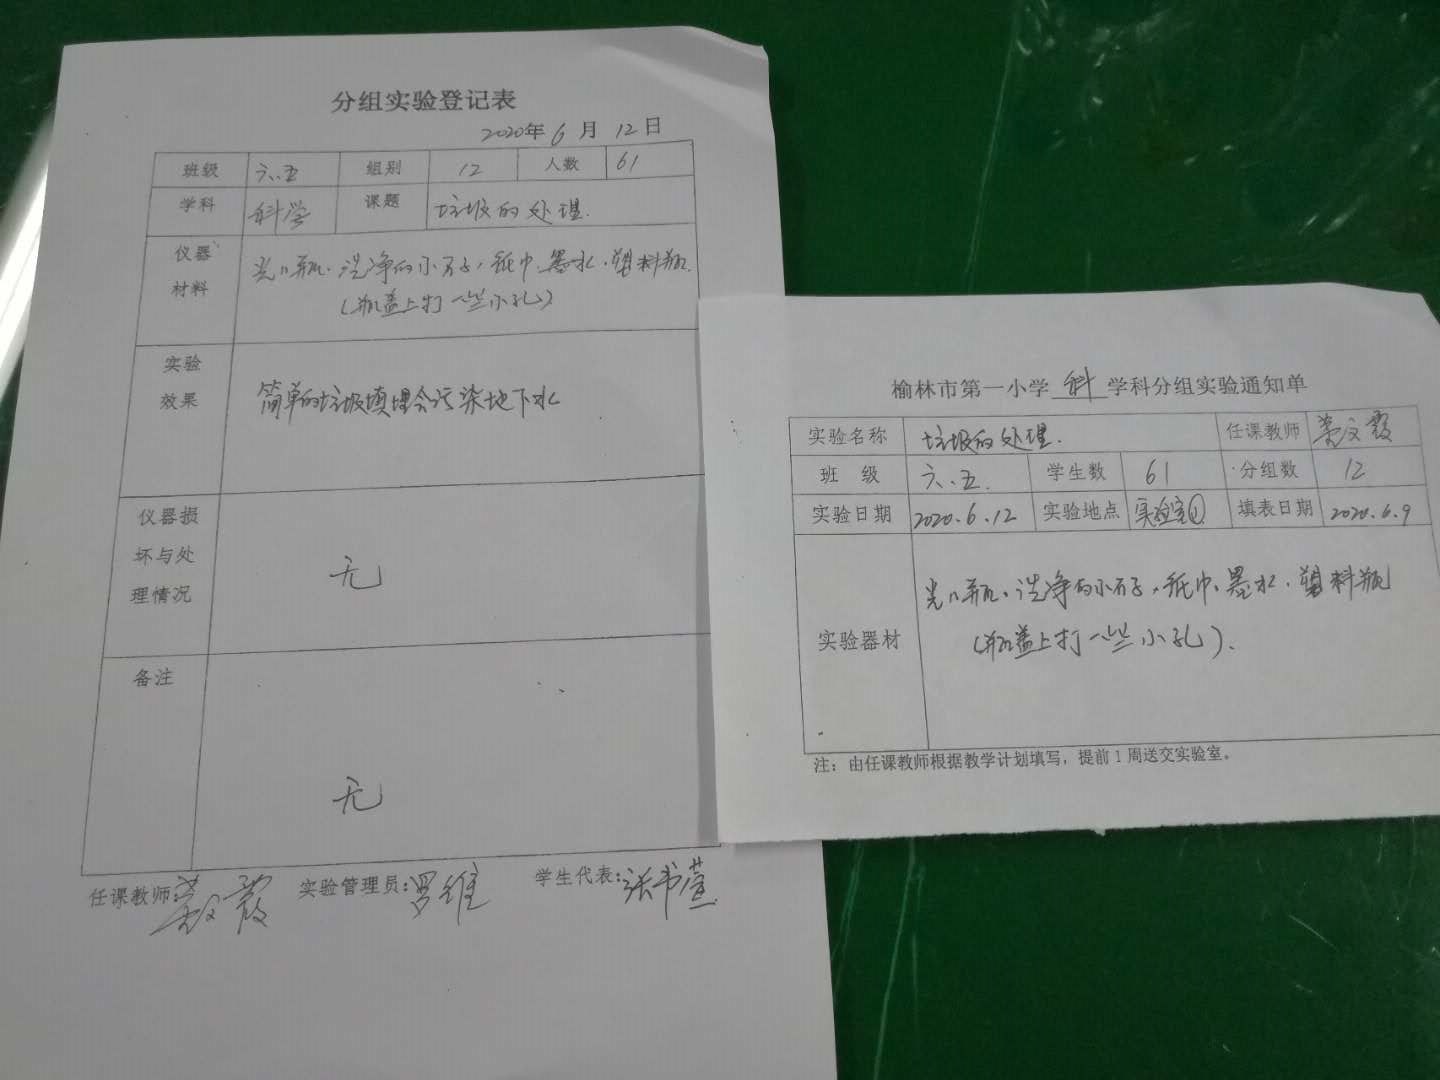 分组实验登记表
2020年6月12日
班级 六.五 组别 12 人数 61
学科 科学 课题 垃圾的处理.
仪器材料
广口瓶、洗净的小石子、纸巾、墨水、塑料瓶
(瓶盖上打一些小孔)
实验效果
简单的垃圾填埋会污染地下水
仪器损坏与处理情况
无
备注
无
任课教师: 霞 实验管理员: 罗维 学生代表: 张书萱
榆林市第一小学 科 学科分组实验通知单
实验名称 垃圾的处理. 任课教师 文霞
班 级 六.五. 学生数 61 分组数 12
实验日期 2020.6.12 实验地点 实验室① 填表日期 2020.6.9
实验器材
广口瓶、洗净的小石子、纸巾、墨水、塑料瓶
(瓶盖上打一些小孔).
注：由任课教师根据教学计划填写，提前1周送交实验室。